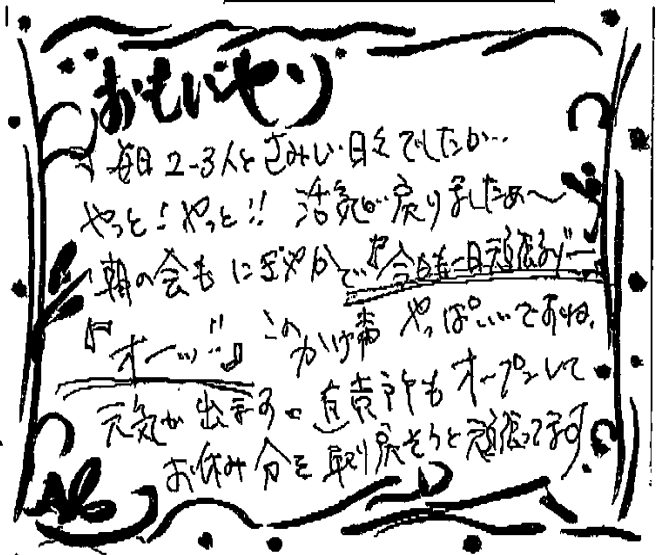 おもいやり
毎日2-3人とさみしい日々でしたが…
やっと!やっと!! 活気が戻りましたぁ〜
朝の会もにぎやかで『今日も一日頑張るぞー
『オーッ!!』このかけ声 やっぱいいですね。
元気が出ます。直売所もオープンして
お休み分を取り戻そうと頑張ってます